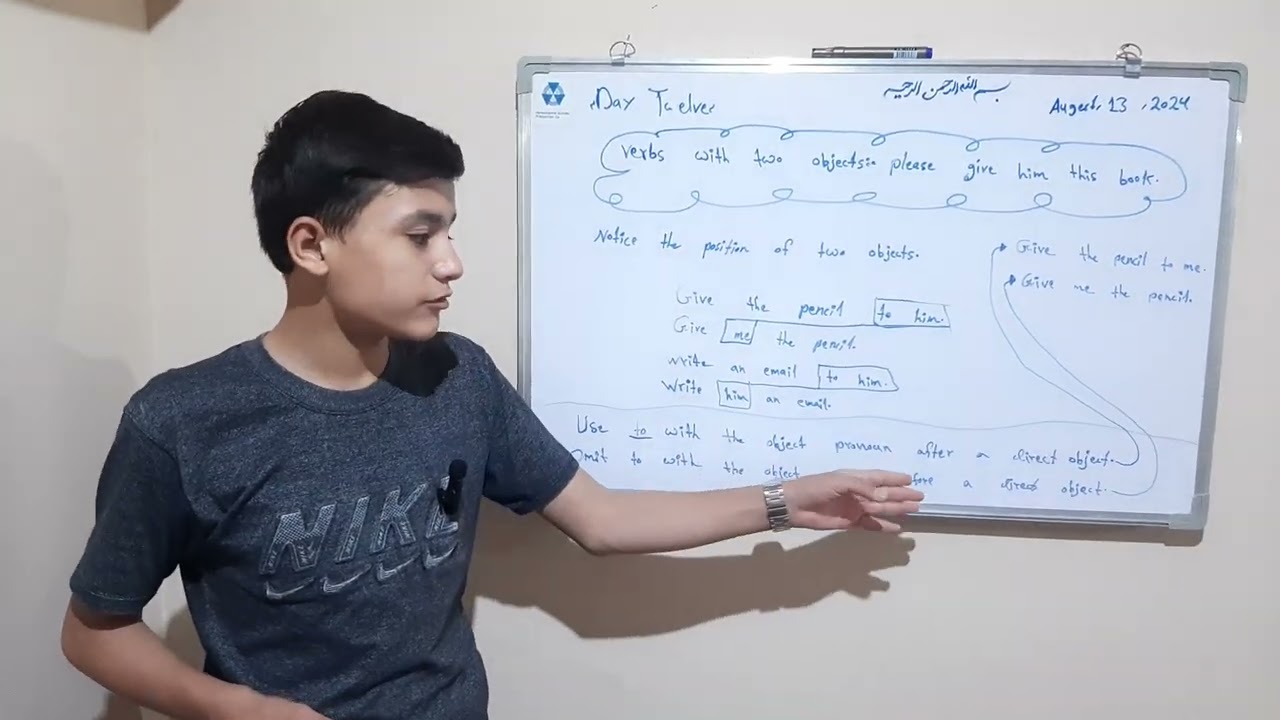 Day Twelve
بسم الله الرحمن الرحيم
August, 13, 2024
verbs with two objects: please give him this book.
Notice the position of two objects.
Give the pencil to me.
Give me the pencil.
Give the pencil to him.
Give me the pencil.
write an email to him.
Write him an email.
Use to with the object pronoun after a direct object.
Omit to with the object a direct object.
NIKE